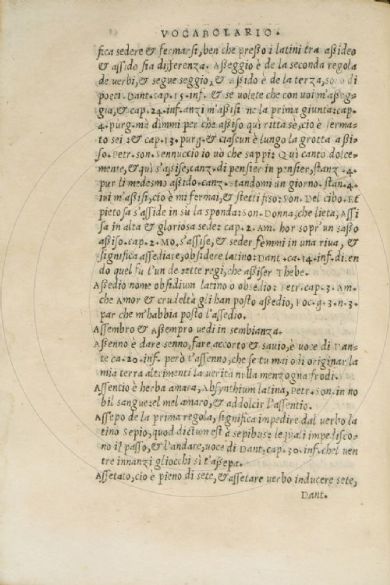 VOCABOLARIO.
fica sedere & fermarsi, ben che presto i latini tra assideo
& assido sia differenza. Asseggio è de la seconda regola
de verbi, & segue seggio, & Assido è de la terza, sono di
poeti. Dant. cap. 15. inf. & se volete che con voi m'asseg
gia, & cap. 24. inf. anzi m'assisi ne la prima giunta: cap.
4. purg. ma dimmi per che assiso qui ritta se, cio è ferma
to sei: & cap. 13. purg. & ciascun è lungo la grotta assi
so. Petr. son. Sennuccio io uò che sappi: Qui canto dolce
mente, & quì s'assise, canz. di pensier in pensier, stanz. 4.
pur lì medesmo assido. canz. Standomi un giorno. stan. 4.
ini m'assisi, cio è mi fermai, & stetti fiso: son. Del cibo. Et
pietosa s'asside in su la sponda: son. Donna, che lieta, Assi
sa in alta & gloriosa sede: cap. 2. Am. hor sopr' un sasso
assiso. cap. 2. Mo, s'assise, & seder femmi in una riua, &
significa assediare, obsidere latino: Dant. ca. 14. inf. di-en
do quel fu l'un de sette regi, che assiser Thebe.
Assedio nome obsidium latino o obsedio: Petr. cap. 3. Am.
che Amor & crudeltà gli han posto assedio, Boc. g. 3. n. 3.
par che m'habbia posto l'assedio.
Assembro & assempro uedi in sembianza.
Assenno è dare senno, fare accorto & sauio, è uoce di Dan-
te ca. 20. inf. però t'assenno, che se tu mai odi originar la
mia terra altrimenti la uerità nulla menzogna frodi.
Assentio è herba amara, absynthium latina, Petr. son. in no
bil sangue: el mel amaro, & addolcir l'assentio.
Assepo de la prima regola, significa impedire dal uerbo la
tino sepio, quod dictum est à sepibus: le quali impedisco-
no il passo, & l'andare, uoce di Dant. cap. 30. inf. chel uen
tre innanzi gliocchi sì t'assepa.
Assetato, cio è pieno di sete, & assetare uerbo inducere sete,
Dant.